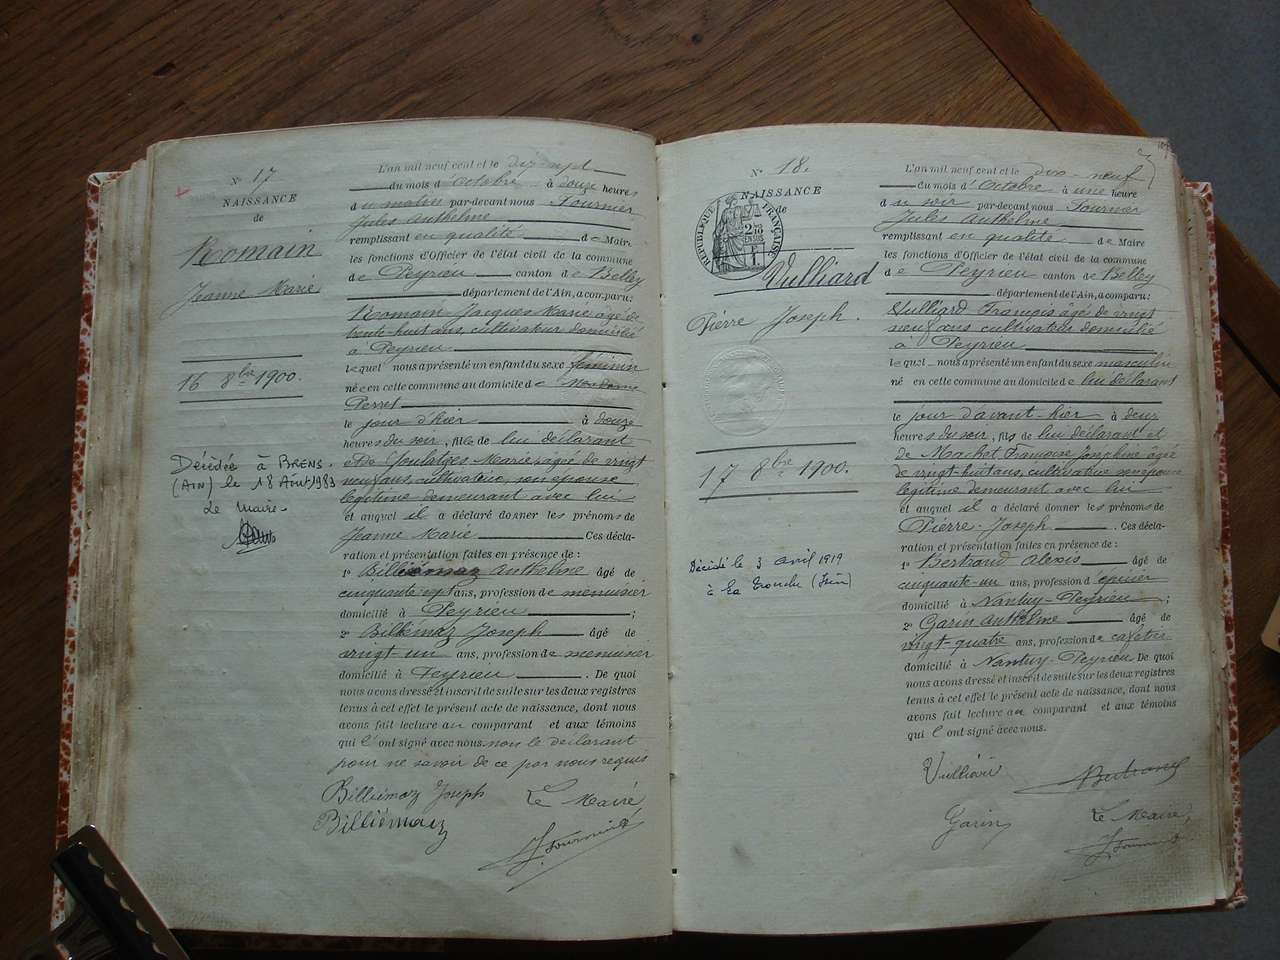 N° 17
NAISSANCE
de
Romain
Jeanne Marie
16 8bre 1900.
Décédée à BRENS.
(AIN) le 18 Août 1983
Le Maire.
L'an mil neuf cent et le dix-sept
du mois d'octobre à douze heures
du matin par-devant nous Fournier
Jules Anthelme
remplissant en qualité de Maire
les fonctions d'Officier de l'état civil de la commune
de Peyrieu canton de Belley
département de l'Ain, a comparu:
Romain Jacques Marie âgé de
trente huit ans, cultivateur domicilié
à Peyrieu
lequel nous a présenté un enfant du sexe féminin
née en cette commune au domicile de
Perret
le jour d'hier à douze
heures du soir, fille de lui déclarant
et de Marie, âgée de vingt
neuf ans, cultivatrice, son épouse
légitime demeurant avec lui
et auquel il a déclaré donner les prénoms de
Jeanne Marie Ces décla-
ration et présentation faites en présence de :
1° Billiémaz Anthelme âgé de
cinquante sept ans, profession de menuisier
domicilié à Peyrieu ;
2° Billiémaz Joseph âgé de
vingt-un ans, profession de menuisier
domicilié à Peyrieu . De quoi
nous avons dressé et inscrit de suite sur les deux registres
tenus à cet effet le présent acte de naissance, dont nous
avons fait lecture au comparant et aux témoins
qui l'ont signé avec nous non le déclarant
pour ne savoir de ce par nous requis
Billiémaz Joseph Le Maire
Billiémaz
J. Fournier
N° 18.
NAISSANCE
de
RÉPUBLIQUE FRANÇAISE
Vulliard
Pierre Joseph.
17 8bre 1900.
Décédé le 3 avril 1919
à La Tronche (Isère)
L'an mil neuf cent et le dix-neuf
du mois d'Octobre à une heure
du soir par-devant nous Fournier
Jules Anthelme
remplissant en qualité de Maire
les fonctions d'Officier de l'état civil de la commune
de Peyrieu canton de Belley
département de l'Ain, a comparu:
Vulliard François âgé de vingt
neuf ans, cultivateur domicilié
à Peyrieu
lequel nous a présenté un enfant du sexe masculin
né en cette commune au domicile de lui déclarant
le jour d'avant-hier à deux
heures du soir, fils de lui déclarant et
de Machet Françoise Joséphine âgée
de vingt-huit ans, cultivatrice son épouse
légitime demeurant avec lui
et auquel il a déclaré donner les prénoms de
Pierre-Joseph . Ces décla-
ration et présentation faites en présence de :
1° Bertrand Alexis âgé de
cinquante-un ans, profession d'épicier
domicilié à Nantuy-Peyrieu ;
2° Garin Anthelme âgé de
vingt-quatre ans, profession de cafetier
domicilié à Nantuy-Peyrieu De quoi
nous avons dressé et inscrit de suite sur les deux registres
tenus à cet effet le présent acte de naissance, dont nous
avons fait lecture au comparant et aux témoins
qui l'ont signé avec nous.
Vulliard Bertrand
Garin Le Maire,
J. Fournier